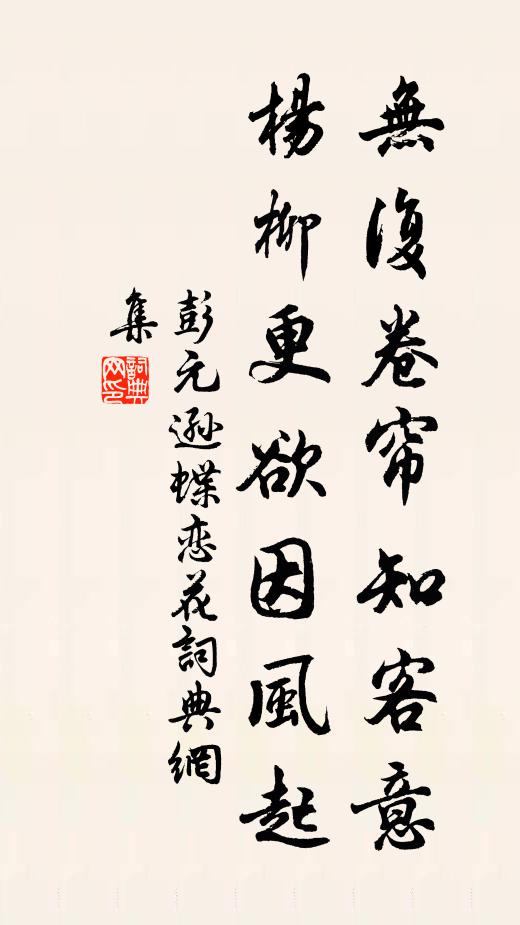 無復卷帘知客意
楊柳更欲因風起
彭元遜蝶恋花詞典網
集
詞典
网印